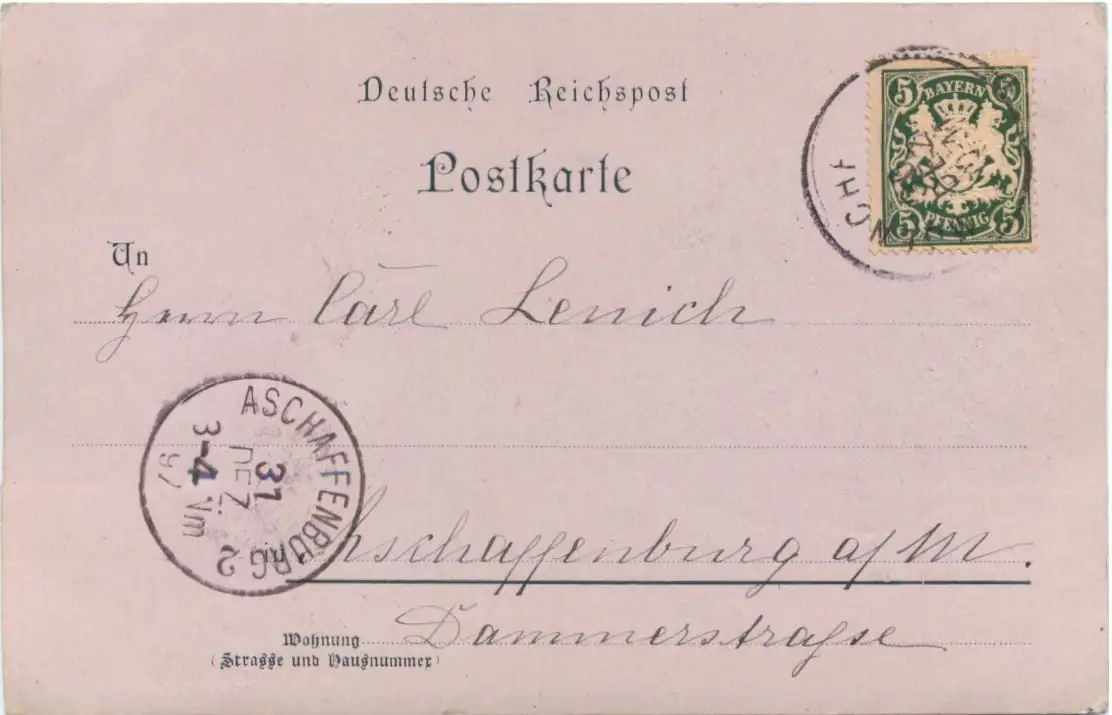 Deutsche Reichspost
Postkarte
5 BAYERN 5
5 PFENNIG 5
An
Herrn Carl Lenich
ASCHAFFENBURG 2
31
DEZ
3-4 Vm
97
in Aschaffenburg a/M.
Wohnung Dammerstraſse
(Strasse und Hausnummer)